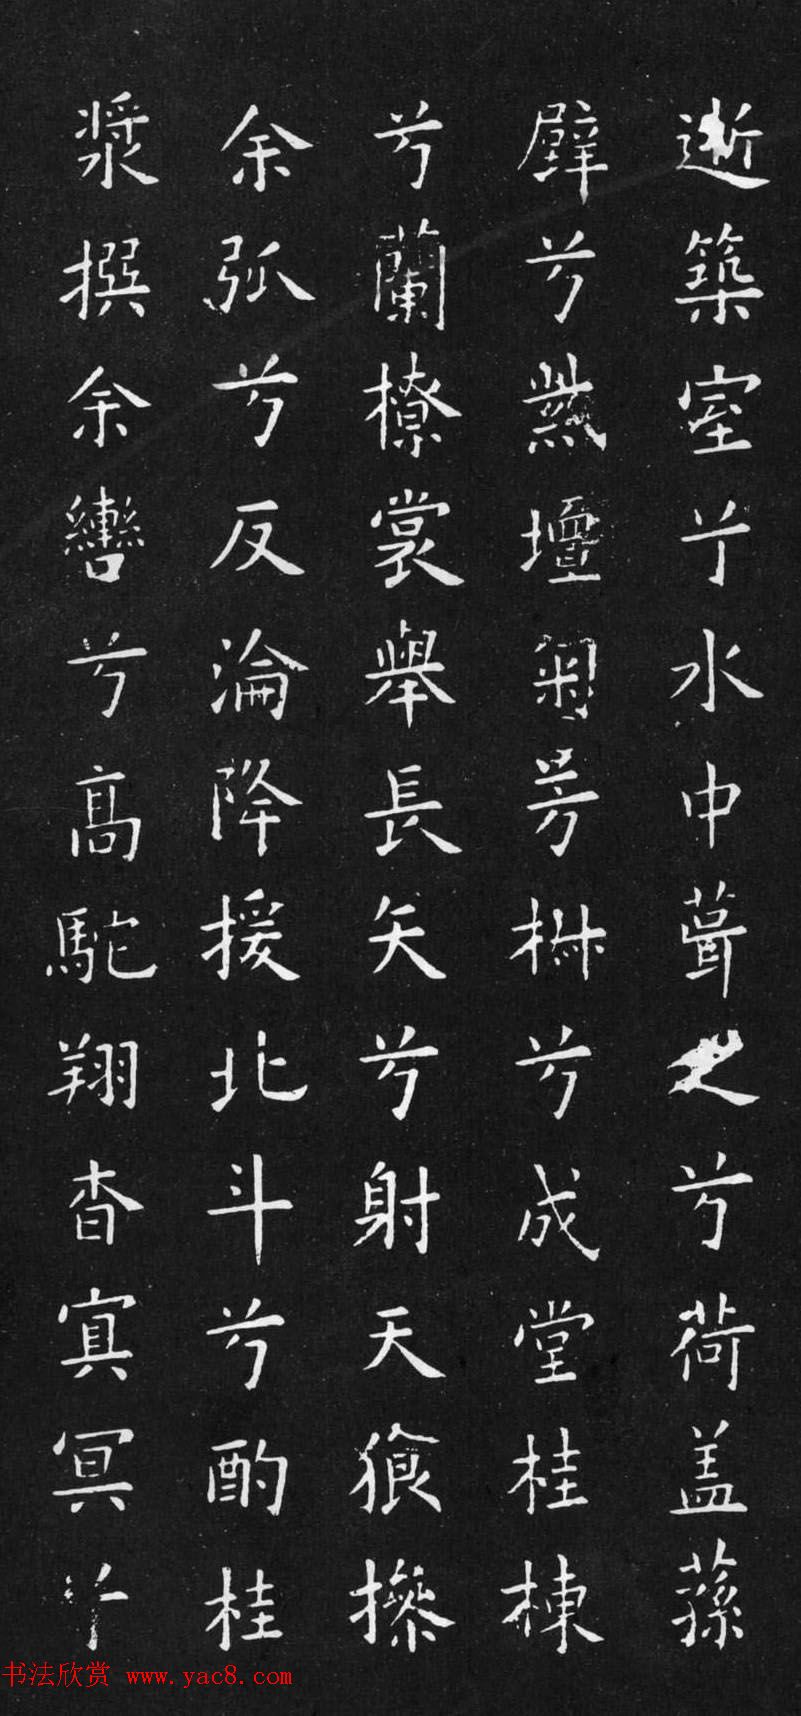 逝築室兮水中葺之兮荷盖蓀
壁兮茈壇匊芳椒兮成堂桂棟
兮蘭橑裳舉長矢兮射天狼操
余弧兮反淪降援北斗兮酌桂
漿撰余轡兮高駝翔杳冥冥兮
书法欣赏 www.yac8.com